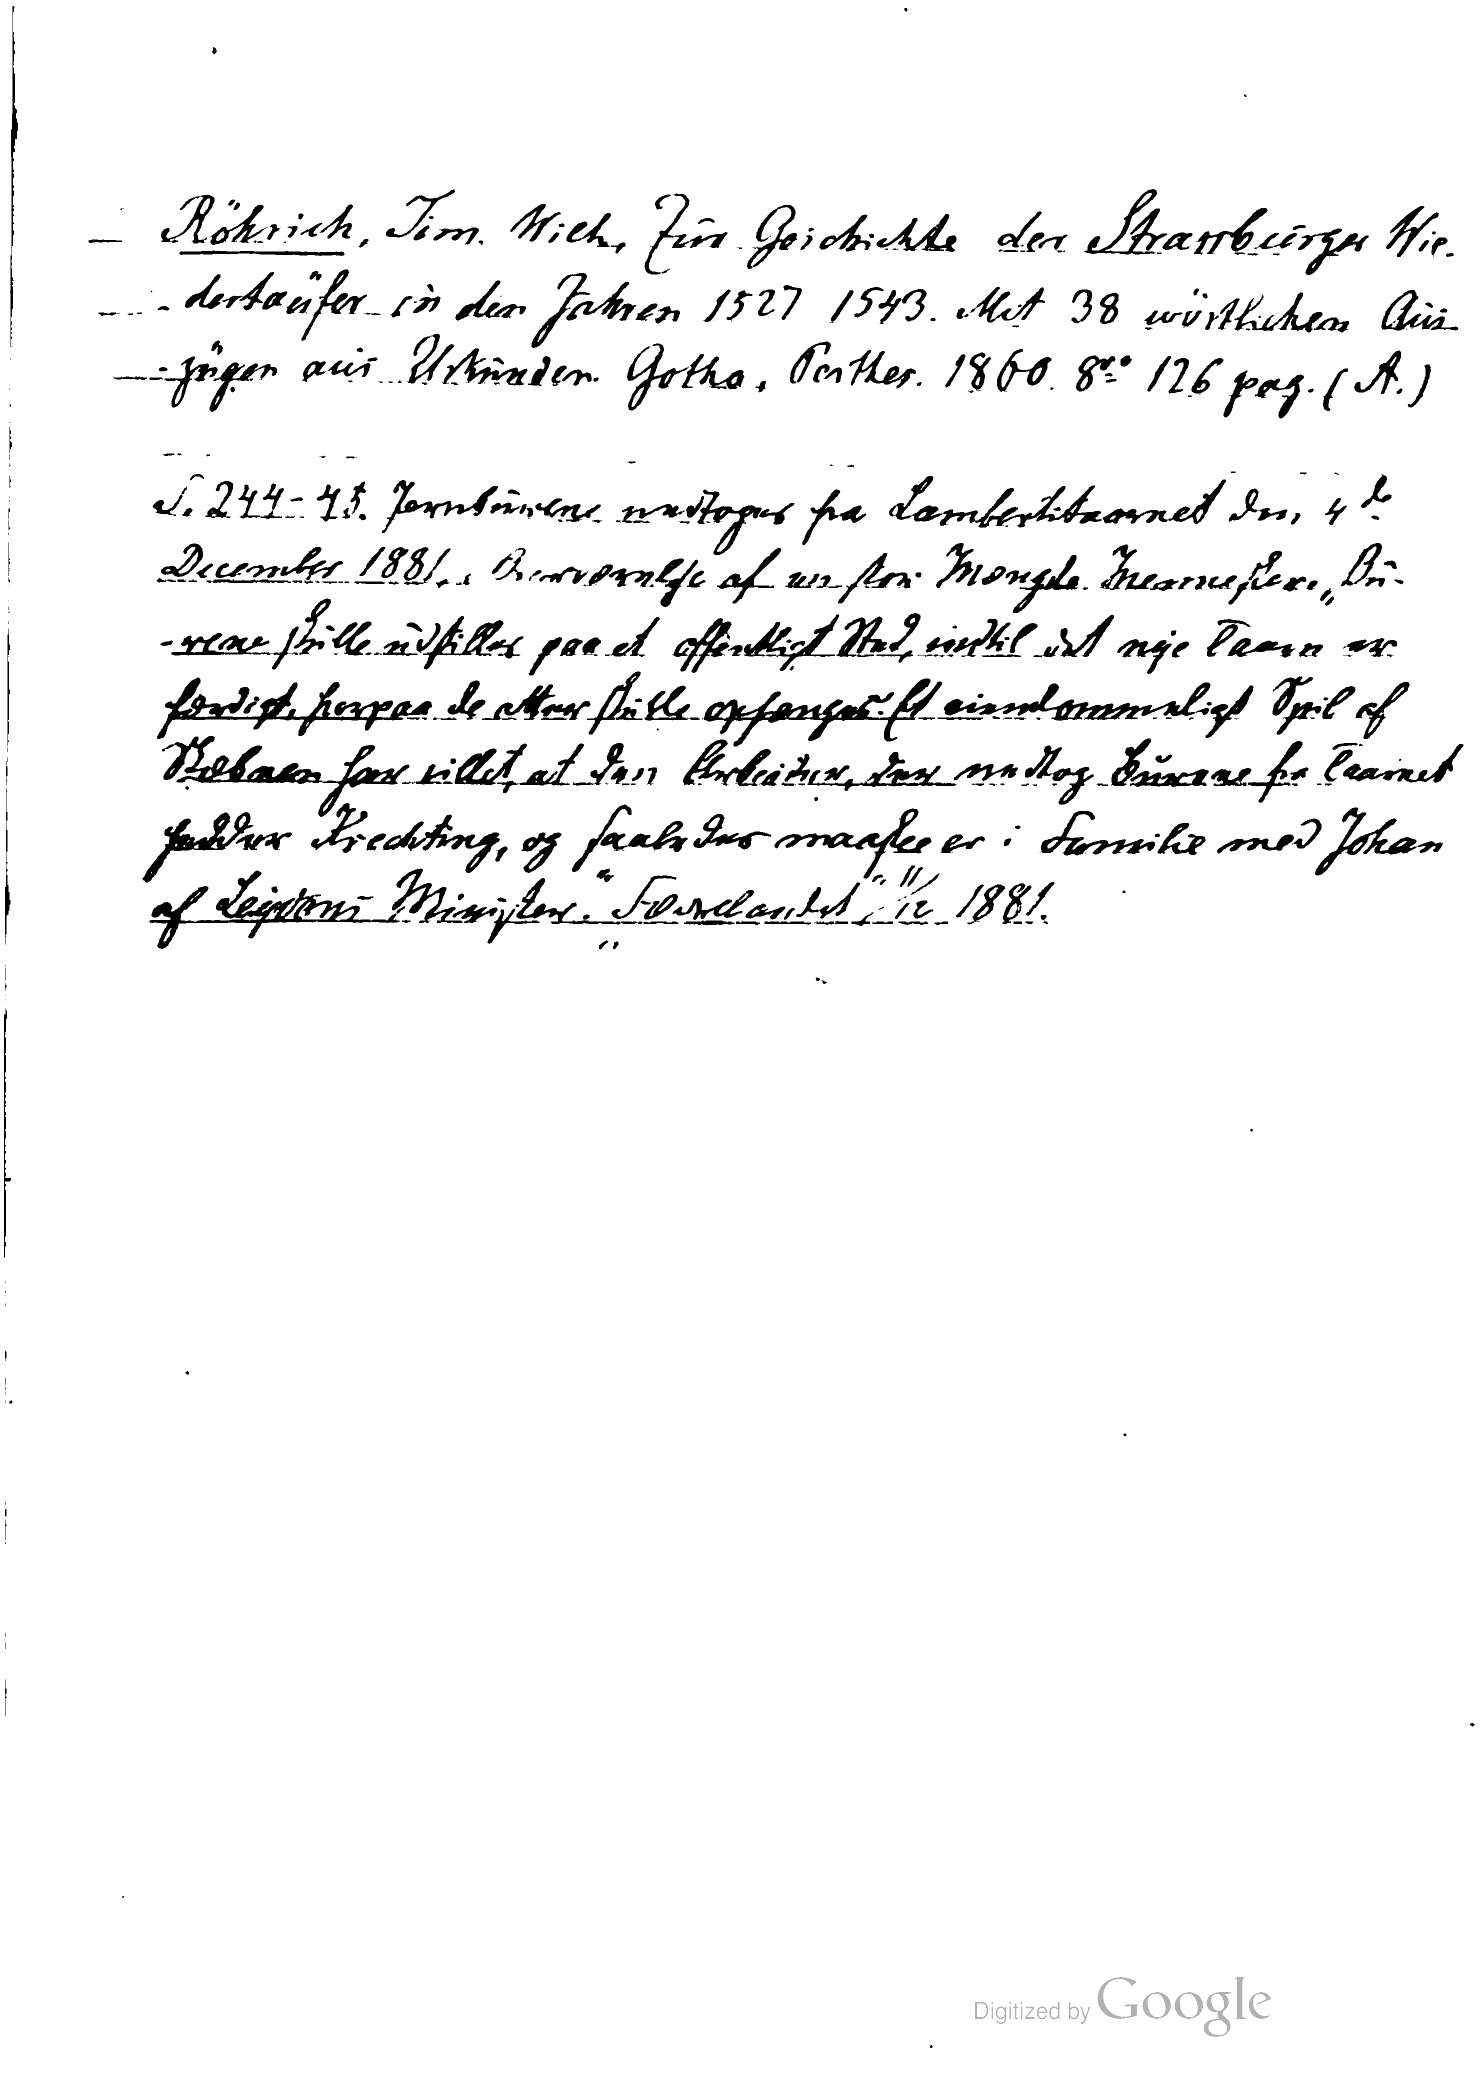 Röhrich, Tim. Wilh., Zur Geschichte der Strassburger Wie-
-dertaüfer in den Jahren 1527 1543. Mit 38 wörtlichen Aus-
-zügen aus Urkunden. Gotha, Perthes. 1860. 8vo 126 pag. (A.)
S. 244-45. Jernburene nedtoges fra Lambertitaarnet den 4de
December 1881, i Overværelse af en stor Mængde Mennesker. „Bu-
-rene skulle udstilles paa et offentligt Sted, indtil det nye Taarn er
færdigt, hvorpaa de atter skulle ophænges. Et eiendommeligt Spil af
Skæbnen har villet, at den Arbeider, der nedtog Burene fra Taarnet
hedder Krechting, og saaledes maaskee er i Familie med Johan
af Leydens Minister." "Fædrelandet" 11/12 1881.
Digitized by Google